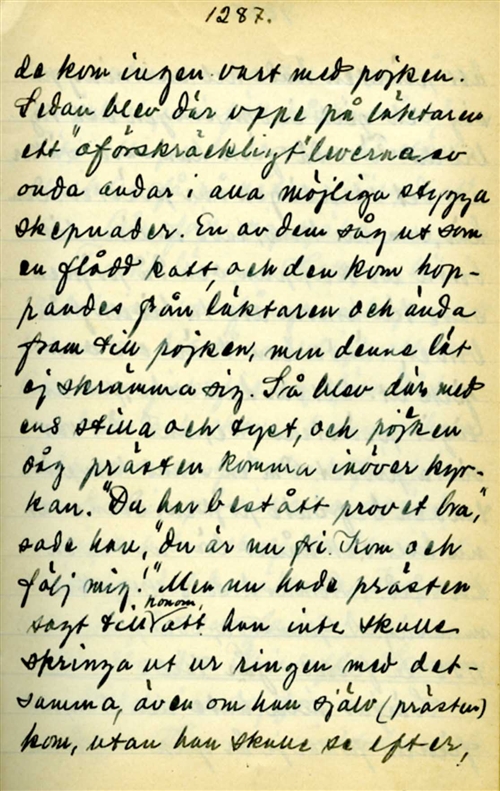 1287.
de kom ingen vart med pojken.
Sedan blev där uppe på läktaren
ett "oförskräckligt" leverne av
onda andar i alla möjliga stygga
skepnader. En av dem såg ut som
en flådd katt, och den kom hop-
pandes från läktaren och ända
fram till pojken, men denne lät
ej skrämma sig. Så blev där med
ens stilla och tyst, och pojken
såg prästen komma inöver kyr-
kan. "Du har bestått provet bra",
sade han, "du är nu fri. Kom och
följ mig!" Men nu hade prästen
sagt till honom, att han inte skulle
springa ut ur ringen med det-
samma, även om han själv (prästen)
kom, utan han skulle se efter,